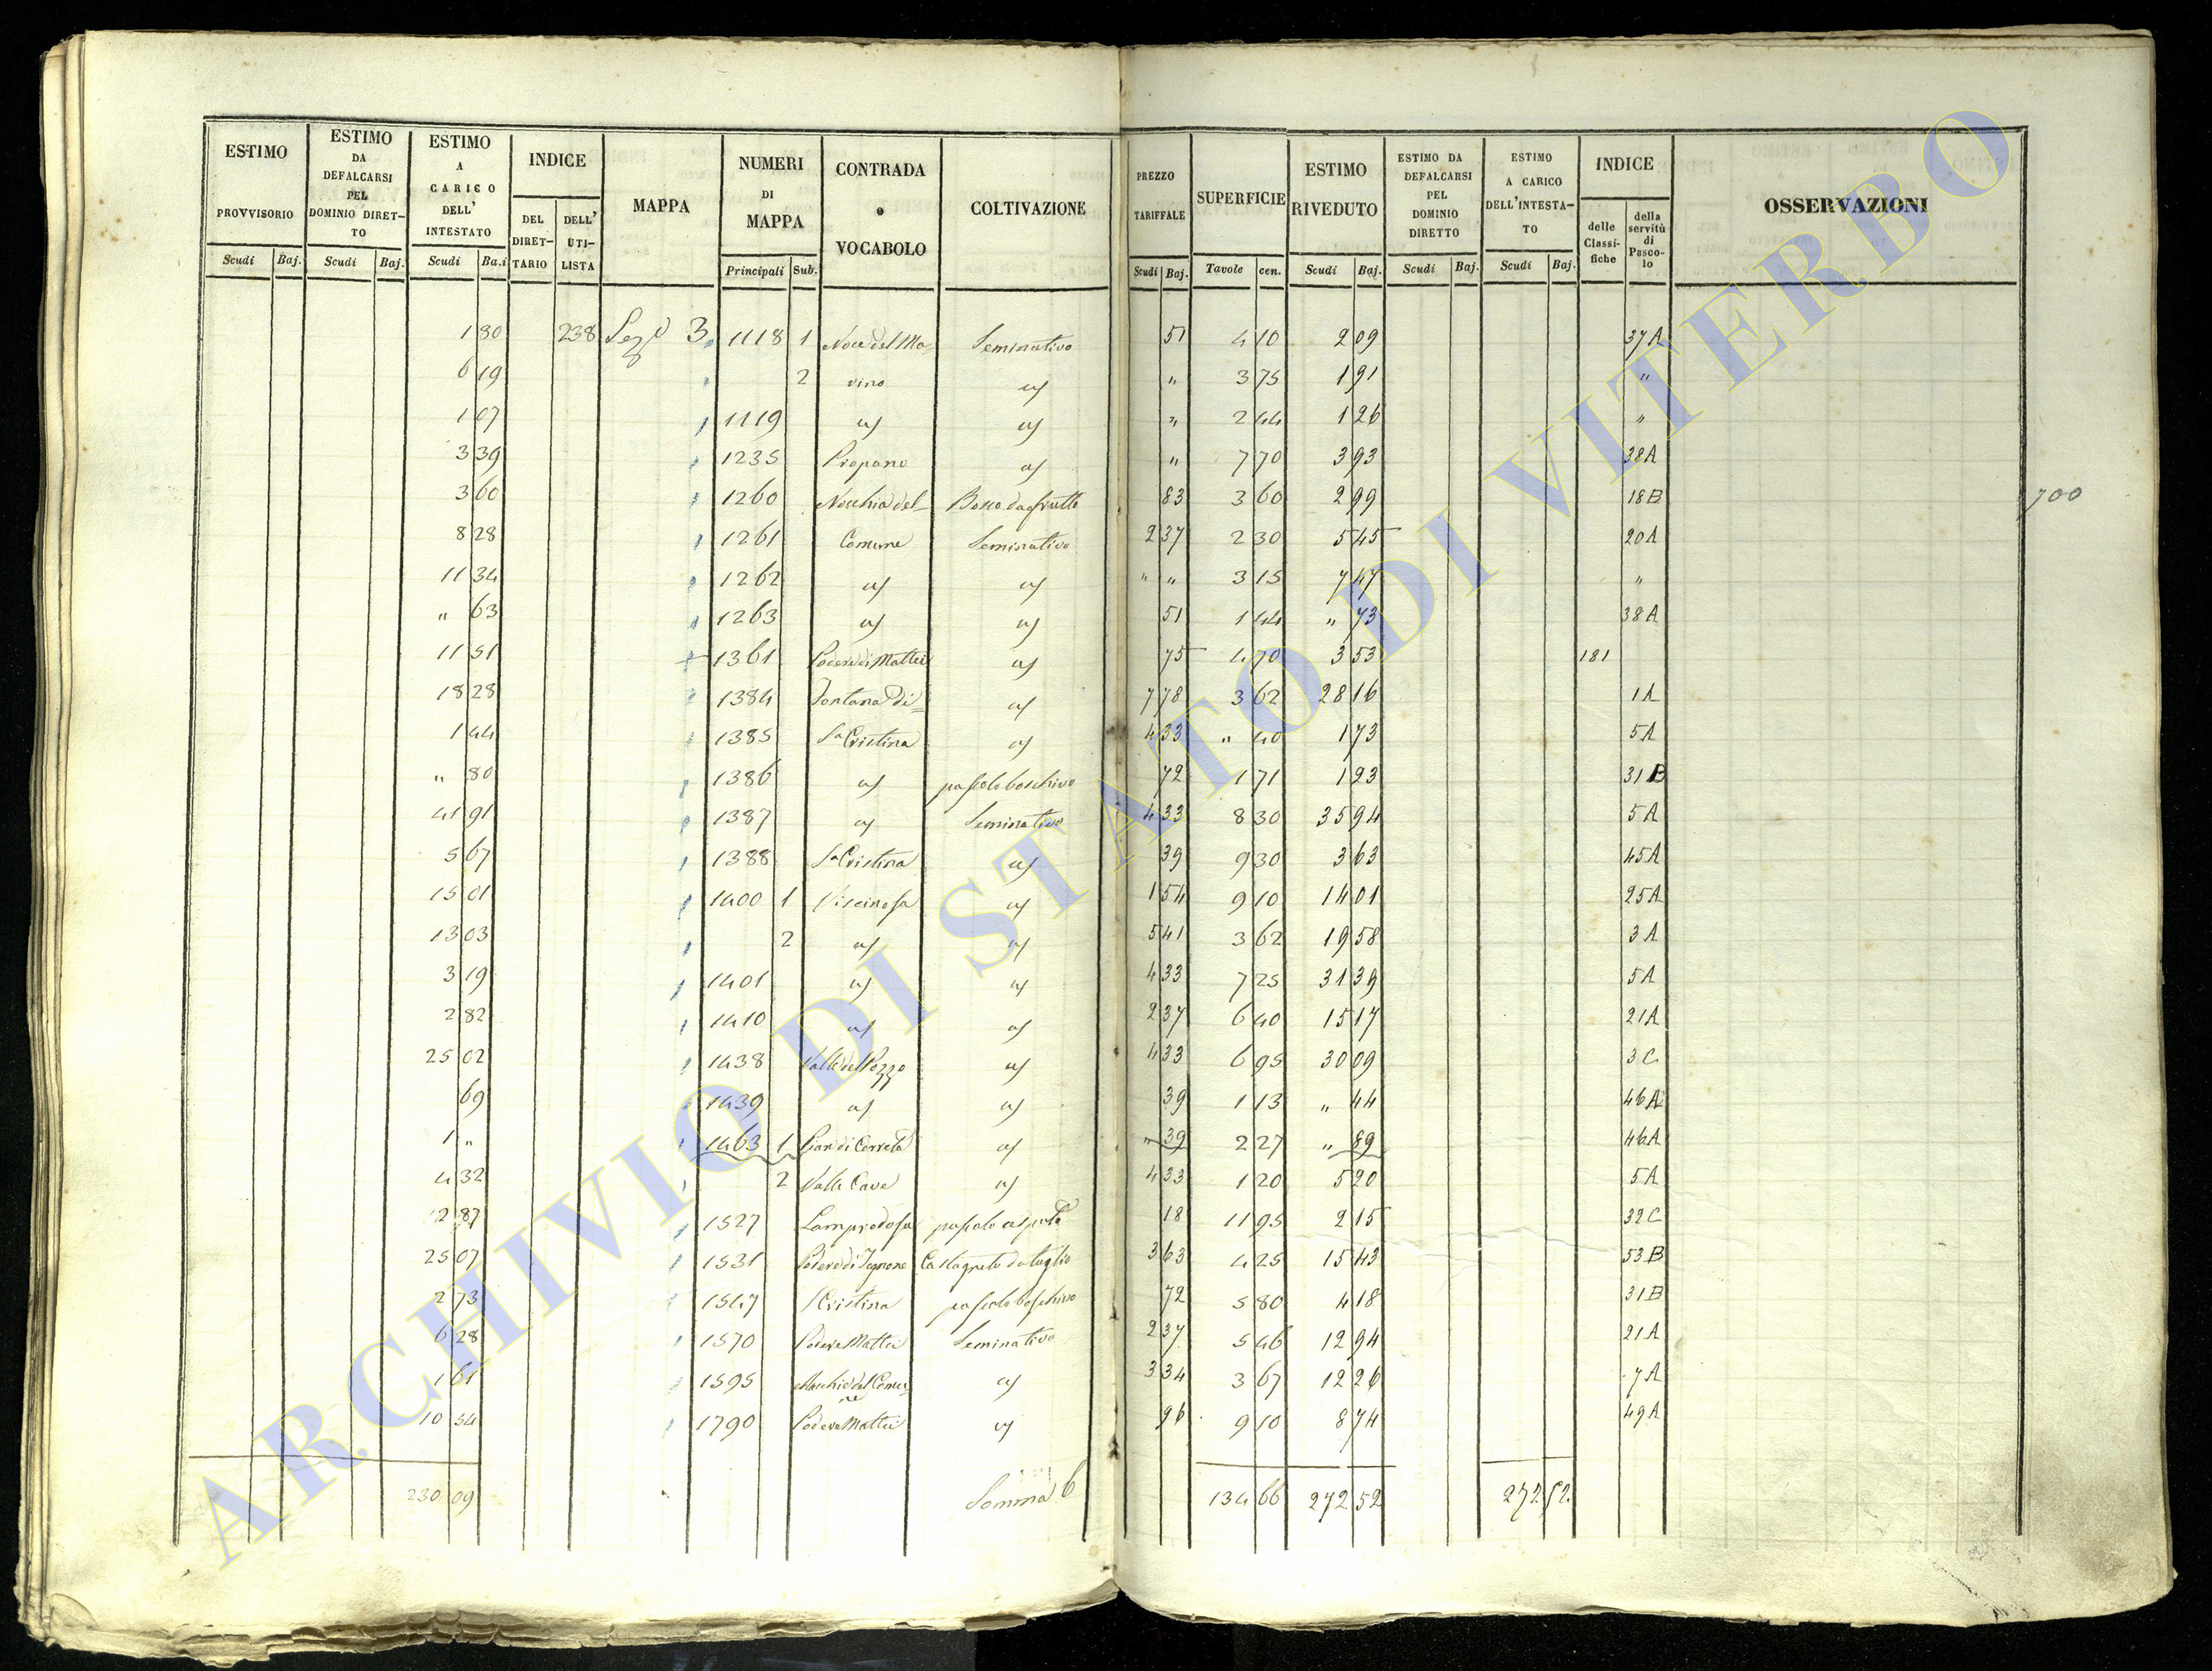 ESTIMO PROVVISORIO
ESTIMO DA DEFALCARSI PEL DOMINIO DIRET-TO
ESTIMO A CARICO DELL' INTESTATO
INDICE
DEL DIRET-TARIO
DELL' UTI-LISTA
MAPPA
NUMERI DI MAPPA
CONTRADA o VOCABOLO
COLTIVAZIONE
PREZZO TARIFFALE
SUPERFICIE
ESTIMO RIVEDUTO
ESTIMO DA DEFALCARSI PEL DOMINIO DIRETTO
ESTIMO A CARICO DELL'INTESTA-TO
INDICE
delle Classi-fiche
della servitù di Pasco-lo
OSSERVAZIONI
Scudi Baj. Scudi Baj. Scudi Ba.i Principali Sub. Scudi Baj. Tavole cen. Scudi Baj. Scudi Baj. Scudi Baj.
1 80 238 3 1118 1 Noce del Ma= Seminativo 51 4 10 2 09 37A
6 19 2 vino " 3 75 1 91 "
1 07 1119 " 2 44 1 26 "
3 39 1235 " 7 70 3 93 38A
3 60 1260 Bosco da frutto 83 3 60 2 99 18B
700
8 28 1261 Comune Seminativo 2 37 2 30 5 45 20A
11 34 1262 " " 3 15 7 47 "
" 63 1263 51 1 44 " 73 38A
11 51 1361 Podere di Mattei 75 4 70 3 53 181
18 28 1384 Fontana Di= 7 78 3 62 28 16 1A
1 44 1385 Sa Cristina 4 33 " 40 1 73 5A
" 80 1386 pascolo boschivo 72 1 71 1 23 31B
41 91 1387 Seminativo 4 33 8 30 35 94 5A
5 67 1388 Sa Cristina 39 9 30 3 63 45A
15 01 1400 1 Viscinosa 1 54 9 10 14 01 25A
13 03 2 5 41 3 62 19 58 3A
3 19 1401 4 33 7 25 31 39 5A
2 82 1410 2 37 6 40 15 17 21A
25 02 1438 Valle del Pozzo 4 33 6 95 30 09 3C
69 1439 39 1 13 " 44 46A
1 " 1463 1 Pian di Cerreto " 39 2 27 " 89 46A
4 32 2 Valle Cave 4 33 1 20 5 20 5A
12 87 1527 pascolo 18 11 95 2 15 32C
25 07 1531 Castagneto da taglio 3 63 4 25 15 43 53B
2 73 1547 S Cristina pascolo boschivo 72 5 80 4 18 31B
6 28 1570 Podere Mattei Seminativo 2 37 5 46 12 94 21A
1 61 1595 Macchia del Comu=ne 3 34 3 67 12 26 7A
10 54 1790 Podere Mattei 96 9 10 8 74 49A
230 09 Somma 6 134 66 272 52 272 52
ARCHIVIO DI STATO DI VITERBO